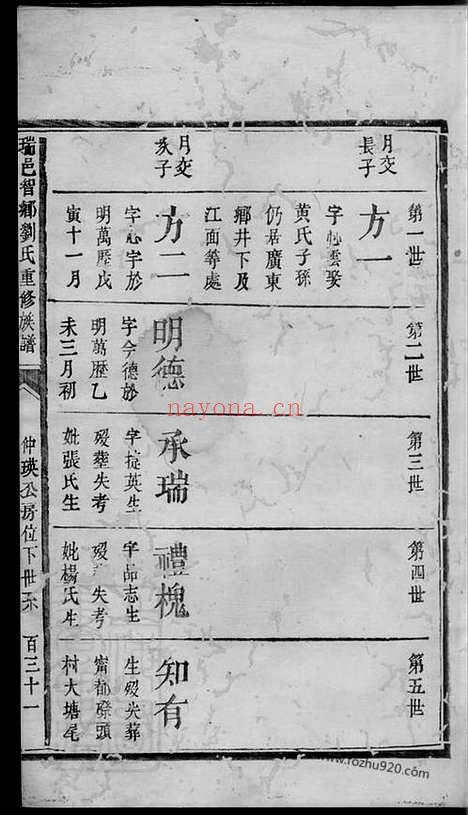 第一世
月文
長子
方一
字心雲娶
黃氏子孫
仍居廣東
鄉井下及
江面等處
月文
次子
方二
字心宇於
明萬歷戊
寅十一月
第二世
明德
字今德於
明萬歷乙
未三月初
第三世
承瑞
字挺英生
歿塟失考
妣張氏生
第四世
禮槐
字品志生
歿 失考
妣楊氏生
第五世
知有
生歿失葬
甯都 頭
村大塘尾
瑞邑智鄉劉氏重修族譜
仲瑛公房位下世系
百三十一
nayona.cn
www.fozhu920.com